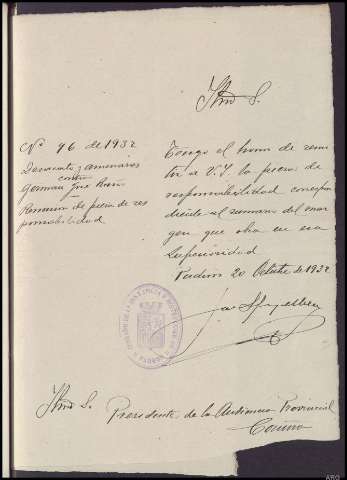 Iltmo S.
Nº 96 de 1932
Desacato y amenazas
contra
German
Remision de pieza de res
ponsabilidad
Tengo el honor de remi
tir a V. I. la pieza de
responsabilidad correspon
diente al sumario del mar
gen que obra en esa
Superioridad
Padron 20 Octubre de 1932
Iltmo S. Presidente de la Audiencia Provincial
Coruña
ARG